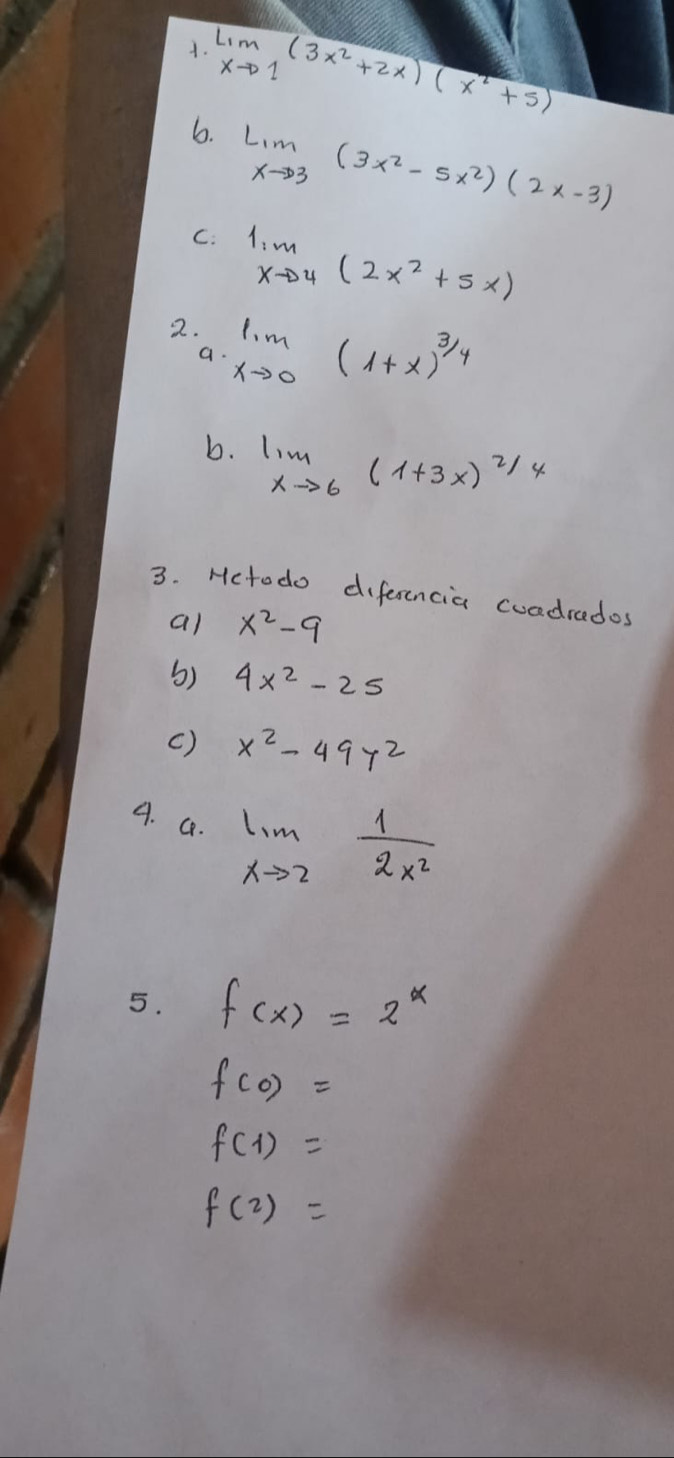 1. Lim x→1 (3x²+2x) (x²+5)
b. Lim x→3 (3x² - 5x²) (2x-3)
c. lim x→4 (2x² + 5x)
2. a. lim x→0 (1+x)^3/4
b. lim x→6 (1+3x)^2/4
3. Metodo diferencia cuadrados
a) x²-9
b) 4x² - 25
c) x² - 49y²
4. a. Lim x→2 1/2x²
5. f(x) = 2^x
f(0) =
f(1) =
f(2) =